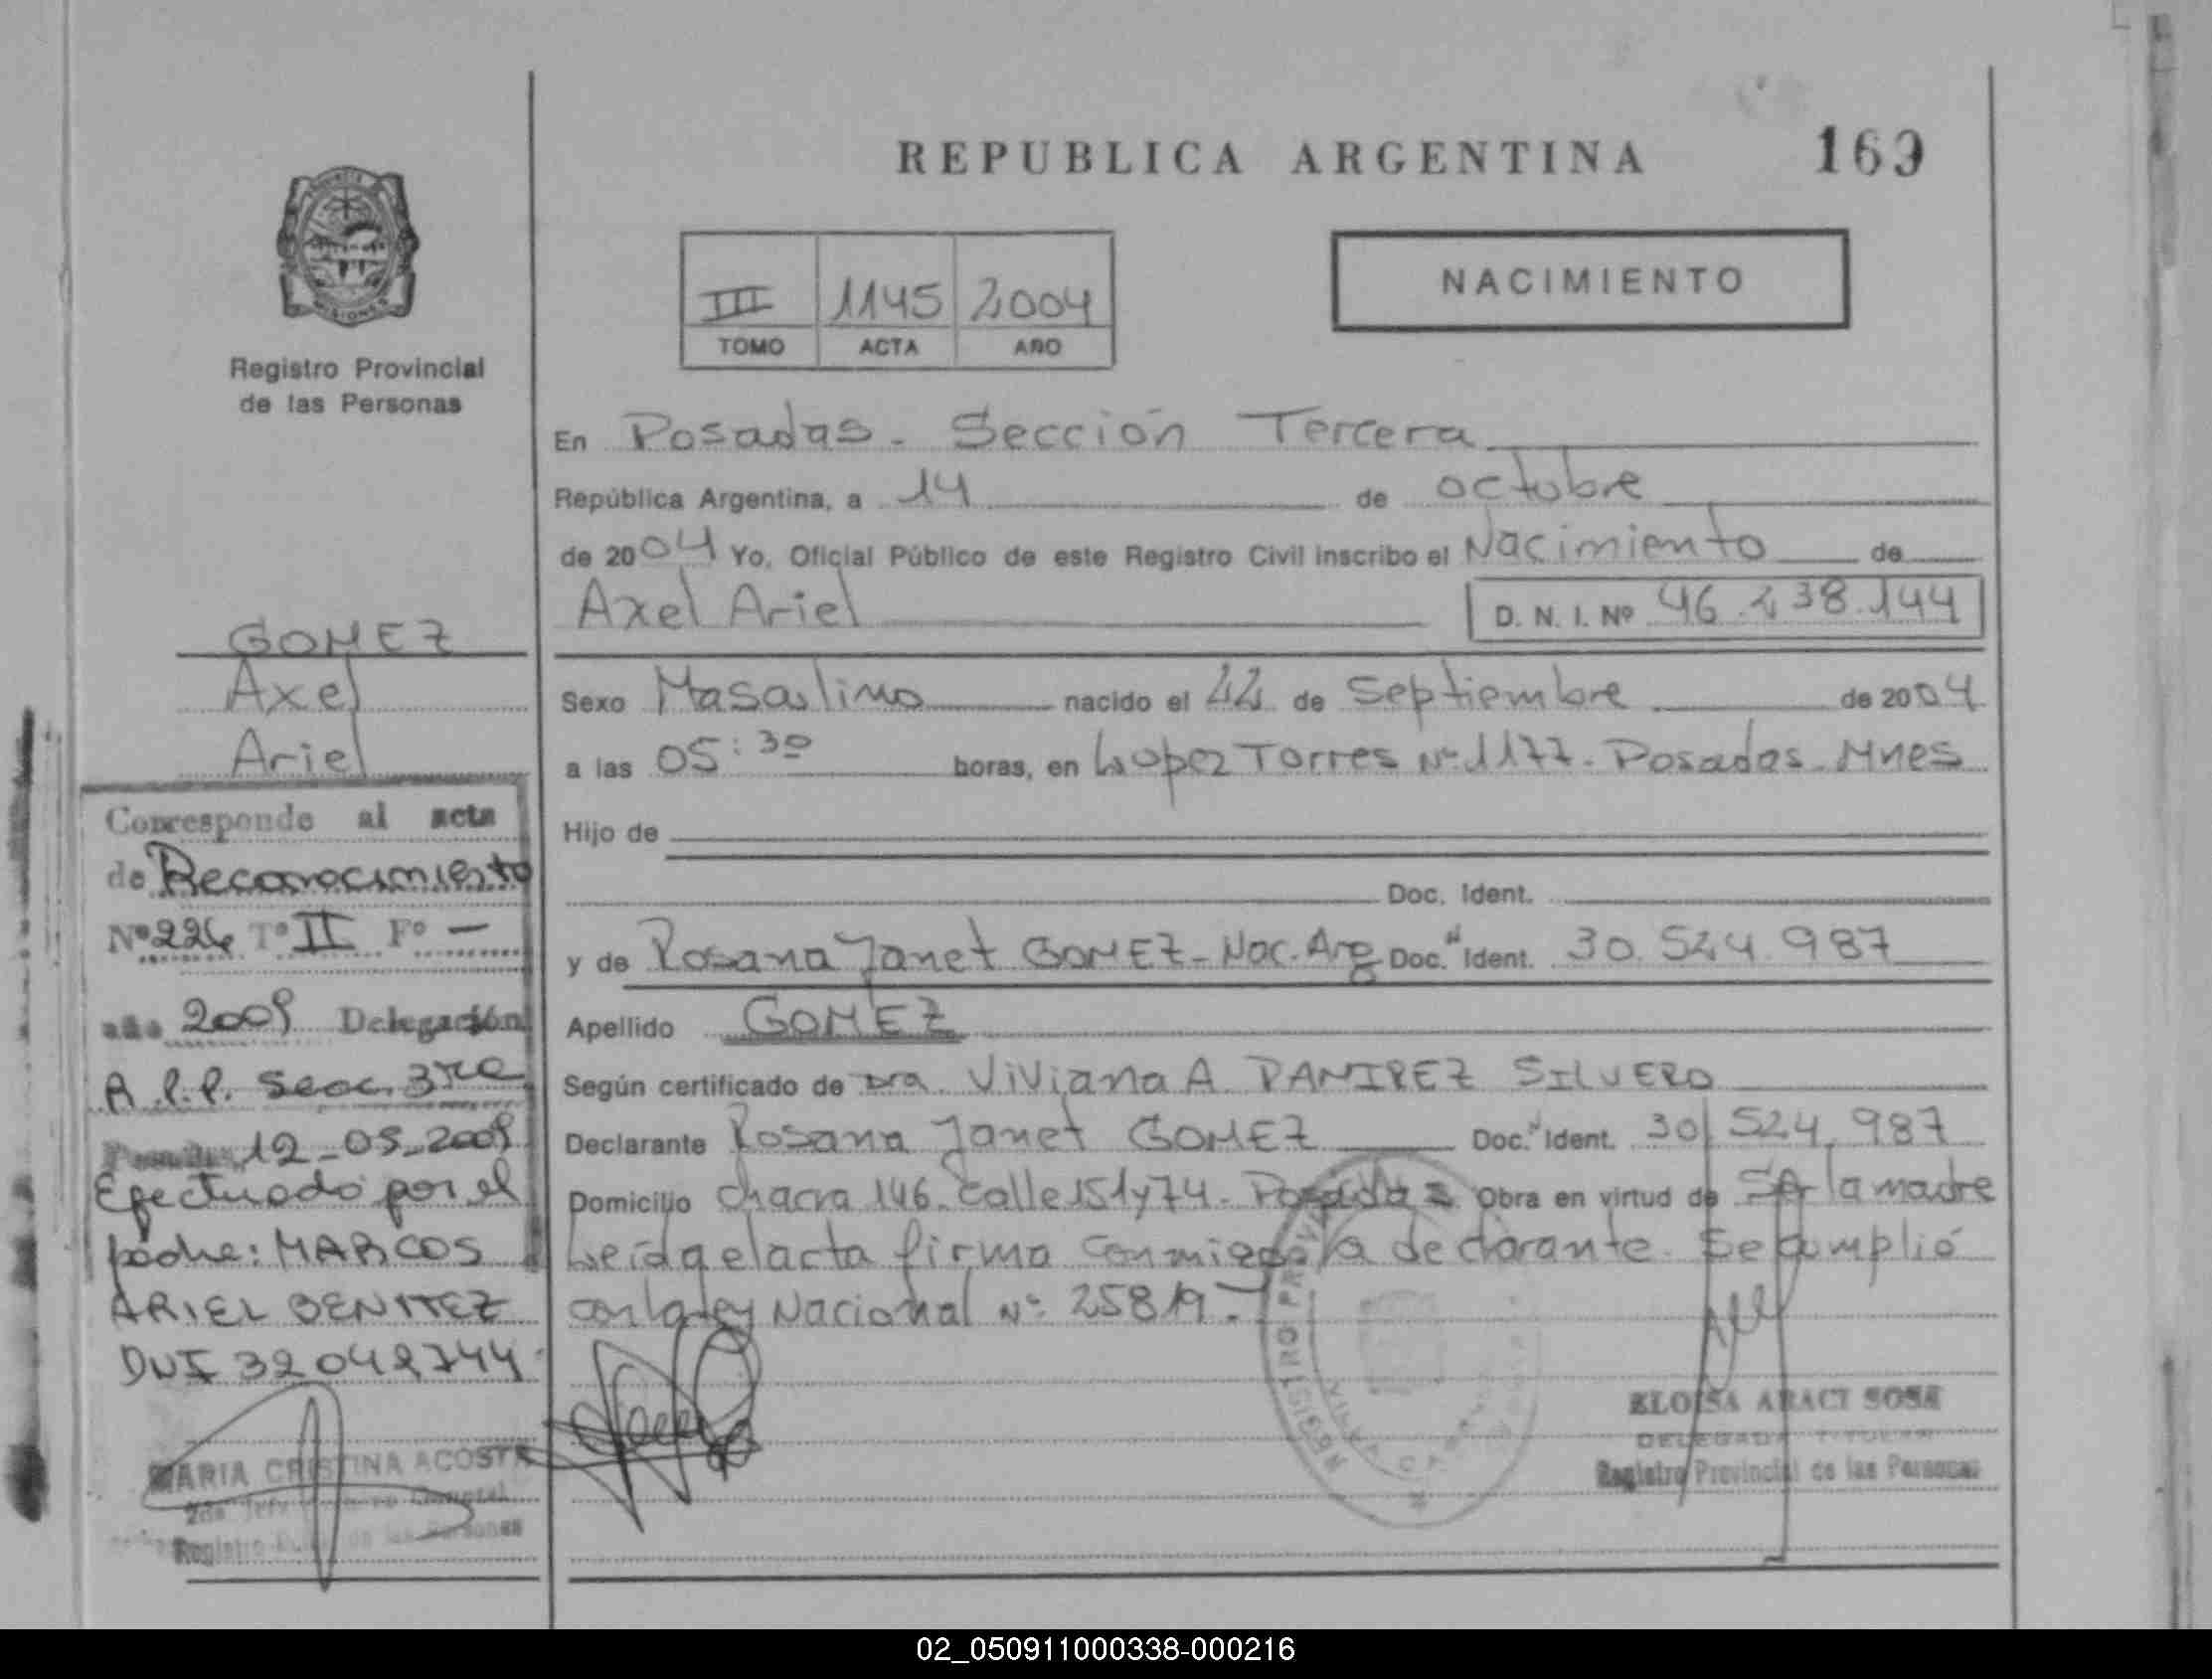 REPUBLICA ARGENTINA 169
PROVINCIA
MISIONES
Registro Provincial
de las Personas
III 1145 2004
TOMO ACTA AÑO
NACIMIENTO
En Posadas - Sección Tercera
República Argentina, a 14 de octubre
de 2004 Yo, Oficial Público de este Registro Civil inscribo el Nacimiento de
Axel Ariel D. N. I. Nº 46.238.144
Sexo Masculino nacido el 22 de Septiembre de 2004
a las 05:30 horas, en Lopez Torres Nº 1177. Posadas - Mnes
Hijo de
Doc. Ident.
y de Rosana Janet GOMEZ - Nac. Arg Doc. Ident. 30.524.987
Apellido GOMEZ
Según certificado de Dra. Viviana A. RAMIREZ SILVERO
Declarante Rosana Janet GOMEZ Doc. Ident. 30.524.987
Domicilio Chacra 146. Calle 151 y 74 - Posadas Obra en virtud de Ser la madre
Leida el acta firma conmigo la declarante. Se cumplió
con la ley Nacional Nº 25819.-
REGISTRO PROV
VILLA CABA
ELOISA ARACI SOSA
DELEGADA TITULAR
Registro Provincial de las Personas
GOMEZ
Axel
Ariel
Corresponde al acta
de Reconocimiento
Nº 226 Tº II Fº -
año 2009 Delegación
R.P.P. Secc. 3ra
Posadas, 12-05-2009
Efectuado por el
padre: MARCOS
ARIEL BENITEZ
DNI 32042744
MARIA CRISTINA ACOSTA
2da Jefe
Registro de las Personas
02_050911000338-000216